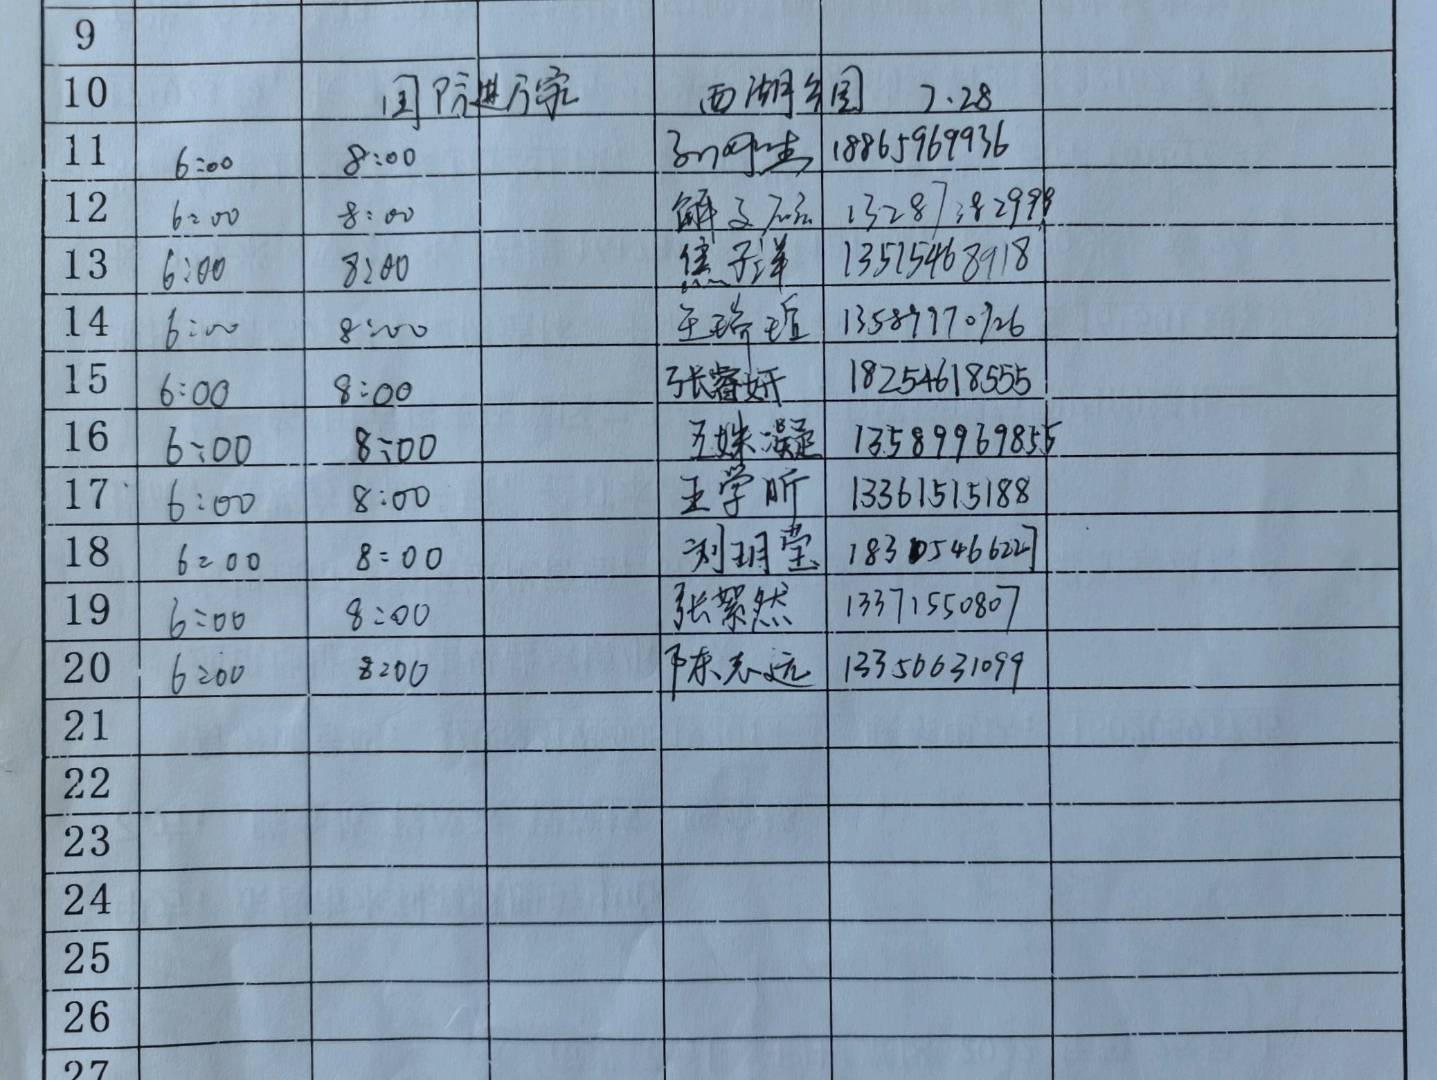 9
10 西湖 7.28
11 6:00 8:00 18865969936
12 6:00 8:00 解文
13 6:00 8:00 焦子洋 13515468918
14 6:00 8:00 王瑞 13589970926
15 6:00 8:00 张睿妍 18254618555
16 6:00 8:00 王姝凝 13589969855
17 6:00 8:00 王学昕 13361515188
18 6:00 8:00 刘玥莹
19 6:00 8:00 张絮然 13371550807
20 6:00 8:00 陈志远 13356631099
21
22
23
24
25
26
27